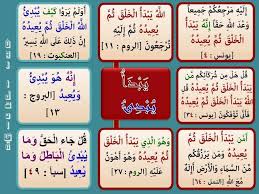 إِلَيْهِ مَرْجِعُكُمْ جَمِيعًا
وَعْدَ اللَّهِ حَقًّا إِنَّهُ يَبْدَأُ
الْخَلْقَ ثُمَّ يُعِيدُهُ
[يونس : ٤]
اللَّهُ يَبْدَأُ
الْخَلْقَ ثُمَّ
يُعِيدُهُ ثُمَّ إِلَيْهِ
تُرْجَعُونَ [الروم : ١١]
أَوَلَمْ يَرَوْا كَيْفَ
يُبْدِئُ اللَّهُ الْخَلْقَ
ثُمَّ يُعِيدُهُ
إِنَّ ذَلِكَ عَلَى اللَّهِ يَسِيرٌ
[العنكبوت : ١٩]
قُلْ هَلْ مِنْ شُرَكَائِكُمْ مَنْ
يَبْدَأُ الْخَلْقَ ثُمَّ يُعِيدُهُ
قُلِ اللَّهُ يَبْدَأُ الْخَلْقَ ثُمَّ
يُعِيدُهُ [يونس : ٣٤]
يَبْدَأُ
يُبْدِئُ
إِنَّهُ هُوَ يُبْدِئُ
وَيُعِيدُ [البروج :
١٣]
أَمَّنْ يَبْدَأُ الْخَلْقَ ثُمَّ
يُعِيدُهُ وَمَنْ يَرْزُقُكُمْ
مِنَ السَّمَاءِ وَالْأَرْضِ أَإِلَهٌ
مَعَ اللَّهِ [النمل : ٦٤]
وَهُوَ الَّذِي يَبْدَأُ
الْخَلْقَ ثُمَّ
يُعِيدُهُ وَهُوَ أَهْوَنُ
عَلَيْهِ [الروم : ٢٧]
قُلْ جَاءَ الْحَقُّ وَمَا
يُبْدِئُ الْبَاطِلُ وَمَا
يُعِيدُ [سبأ : ٤٩]